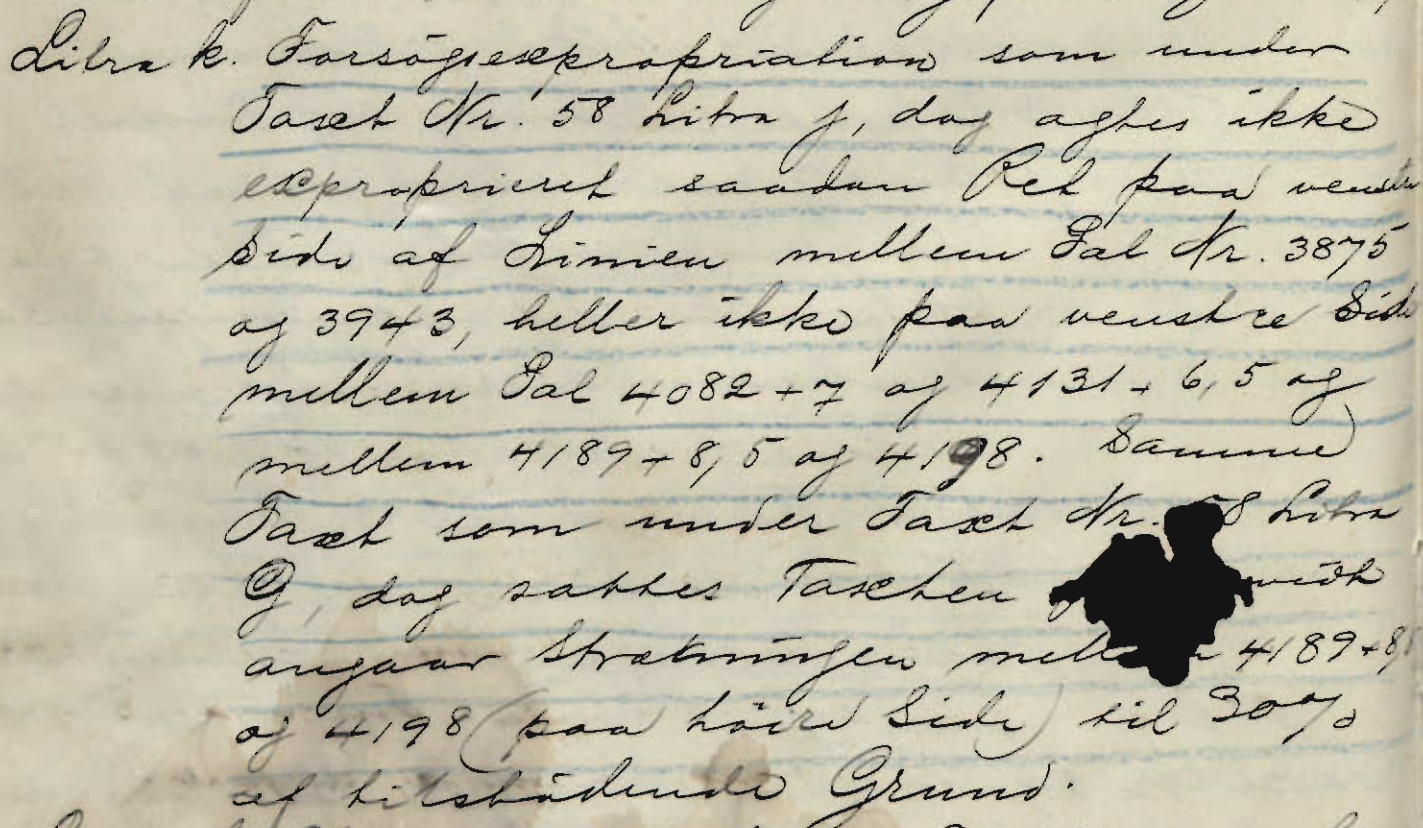 Litra k. Forsøgsexpropriation som under
Taxt Nr. 58 Litra j, dog agtes ikke
exproprieret saadan Ret paa venstre
Side af Linien mellem Pal Nr. 3875
og 3943, heller ikke paa venstre Side
mellem Pal 4082+7 og 4131+6,5 og
mellem 4189+8,5 og 4198. Samme
Taxt som under Taxt Nr. 58 Litra
G, dog sattes Taxten
angaar Strækningen mellem 4189+8,5
og 4198 (paa höire Side) til 30%
af tilstödende Grund.